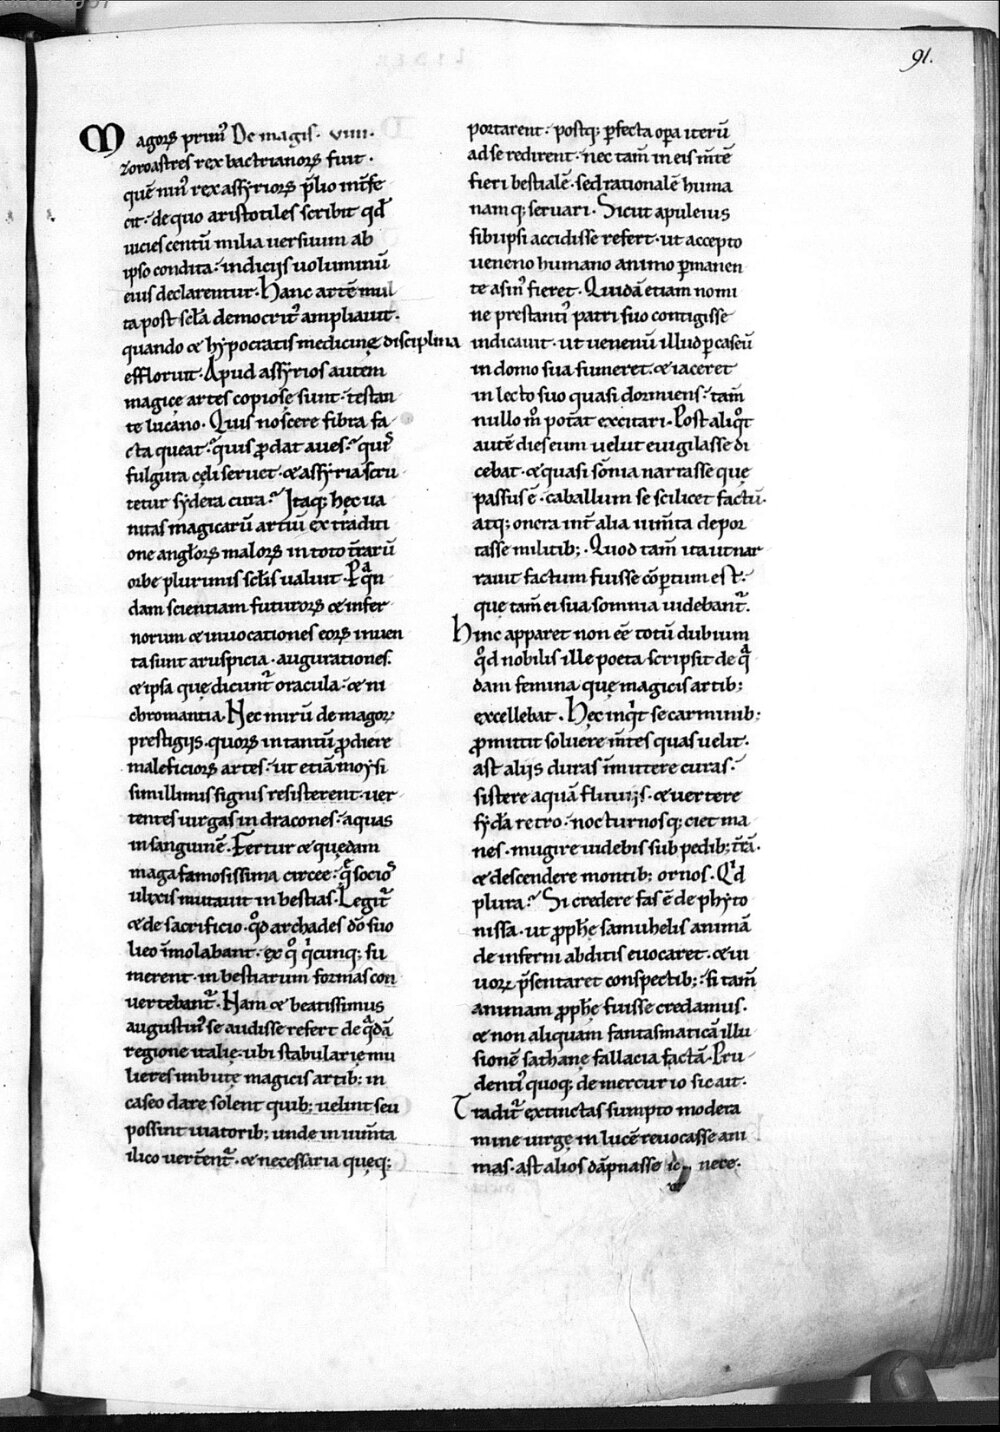 91.
Magoꝝ prim᷒ De magis. viiii.
zoroastres rex bactrianoꝝ fuit.
quē nin᷒ rex assyrioꝝ p̄lio int̄fe
cit. de quo aristotiles scribit qd̄
uicies centū milia uersuum ab
ipso condita. indicijs uoluminū
eius declarentur. Hanc artē mul
ta post sc̄la democrit᷒ ampliauit.
quando & hypocratis medicinę disciplina
effloruit. Apud assyrios autem
magicę artes copiosę sunt. testan
te lucano. Quis noscere fibra fa
cta queat. quis ꝓdat aues. quis
fulgura cęli seruet. & assyria scru
tetur sydera cura. Itaq; hęc ua
nitas magicarū artiū ex traditi
one angl̄oꝝ maloꝝ in toto t̄rarū
orbe plurimis sc̄lis ualuit. P qn
dam scientiam futuroꝝ & infer
norum & inuocationes eoꝝ inuen
ta sunt aruspicia. augurationes.
& ipsa quę dicunt᷑ oracula. & ni
chromantia. Nec mirū de magoꝝ
prestigijs. quoꝝ in tantū ꝓdiere
maleficioꝝ artes. ut etiā moysi
simillimis signis resisterent. uer
tentes uirgas in dracones. aquas
in sanguinē. Fertur & quędam
maga famosissima circeę. q̄ socios
ulixis mutauit in bestias. Legit᷑
& de sacrificio. qd̄ archades dō suo
lieo īmolabant. ex qͦ qͥcunq; su
merent. in bestiarum formas con
uertebant᷑. Nam & beatissimus
augustin᷒ se audisse refert de qᵃdā
regione italię. ubi stabularię mu
lieres imbutę magicis artib; in
caseo dare solent quib; uelint seu
possint uiatorib; unde in ium̄ta
ilico uert̄ent᷑. & necessaria quęq;
portarent. postq; ꝑfecta oꝑa iterū
ad se redirent. nec tam̄ in eis m̄tē
fieri bestialē. sed rationalē huma
namq; seruari. Sicut apuleius
sibi ipsi accidisse refert. ut accepto
ueneno humano animo ꝑmanen
te asin᷒ fieret. Quidā etiam nomi
ne prestanti᷒ patri suo contigisse
indicauit. ut uenenū illud ꝑ caseū
in domo sua sumeret. & iaceret
in lecto suo quasi dormiens. tam̄
nullo mͦ pot̄at excitari. Post aliqͦt
autē dies eum uelut euigilasse di
cebat. & quasi sōnia narrasse quę
passus ē. caballum se scilicet factū.
atq; onera int̄ alia ium̄ta depor
tasse militib;. Quod tam̄ ita ut nar
rauit factum fuisse cōꝑtum est.
quę tam̄ ei sua somnia uidebant᷑.
Hinc apparet non eē totū dubium
qd̄ nobilis ille poeta scripsit de qᵃ
dam femina quę magicis artib;
excellebat. Hęc inqͥt se carminib;
ꝓmittit soluere m̄tes quas uelit.
ast alijs duras īmittere curas.
sistere aquā fluuijs. & uertere
syd̄a retro. nocturnosq; ciet ma
nes. mugire uidebis sub pedib; t̄rā.
& descendere montib; ornos. Qͥd
plura? Si credere fas ē de phyto
nissa. ut ꝓph̄ę samuhelis animā
de inferni abditis euocaret. & ui
uoꝝ p̄sentaret conspectib;. si tam̄
animam ꝓph̄ę fuisse credamus.
& non aliquam fantasmaticā illu
sionē sathanę fallacia factā. Pru
denti᷒ quoq; de mercurio sic ait.
Tradit᷑ extinctas sumpto modera
mine uirgę in lucē reuocasse ani
mas. ast alios dāpnasse nece.